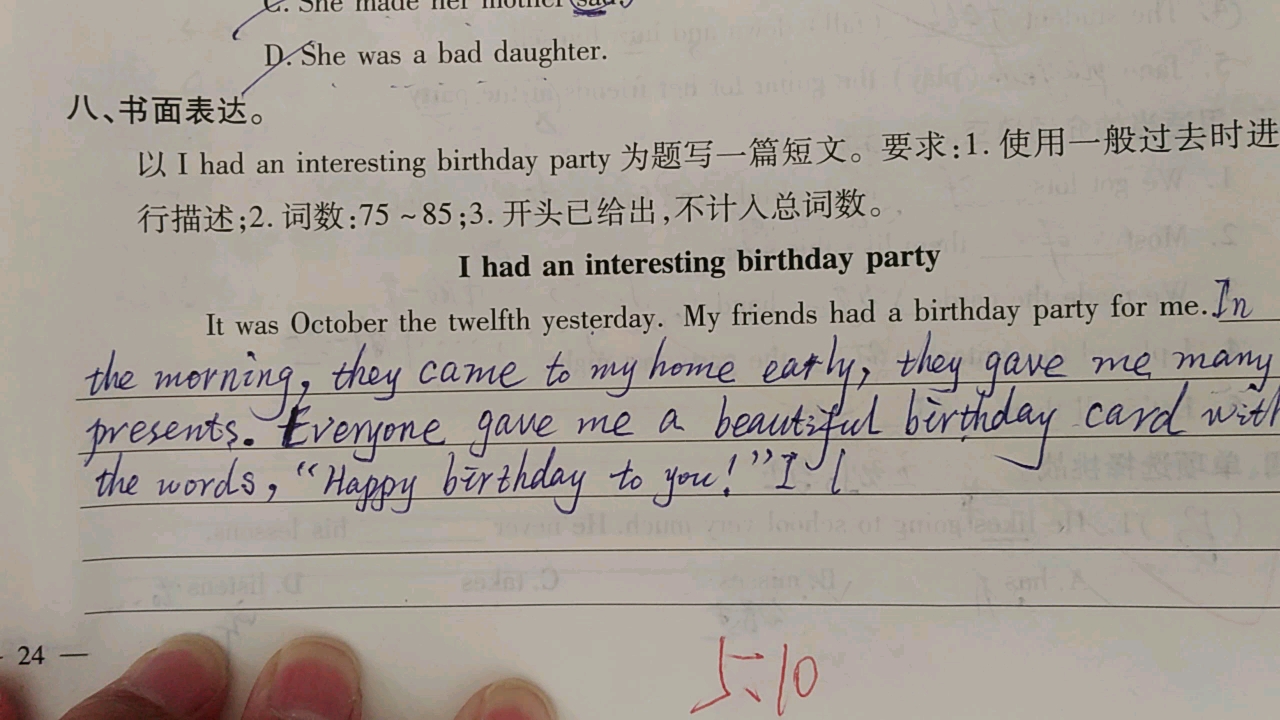 C. She made her mother sad.
D. She was a bad daughter.
八、书面表达。
以 I had an interesting birthday party 为题写一篇短文。要求:1. 使用一般过去时进
行描述;2. 词数:75 ~ 85;3. 开头已给出,不计入总词数。
I had an interesting birthday party
It was October the twelfth yesterday. My friends had a birthday party for me. In
the morning, they came to my home early, they gave me many
presents. Everyone gave me a beautiful birthday card with
the words, “Happy birthday to you!” I l
24 —
5:10